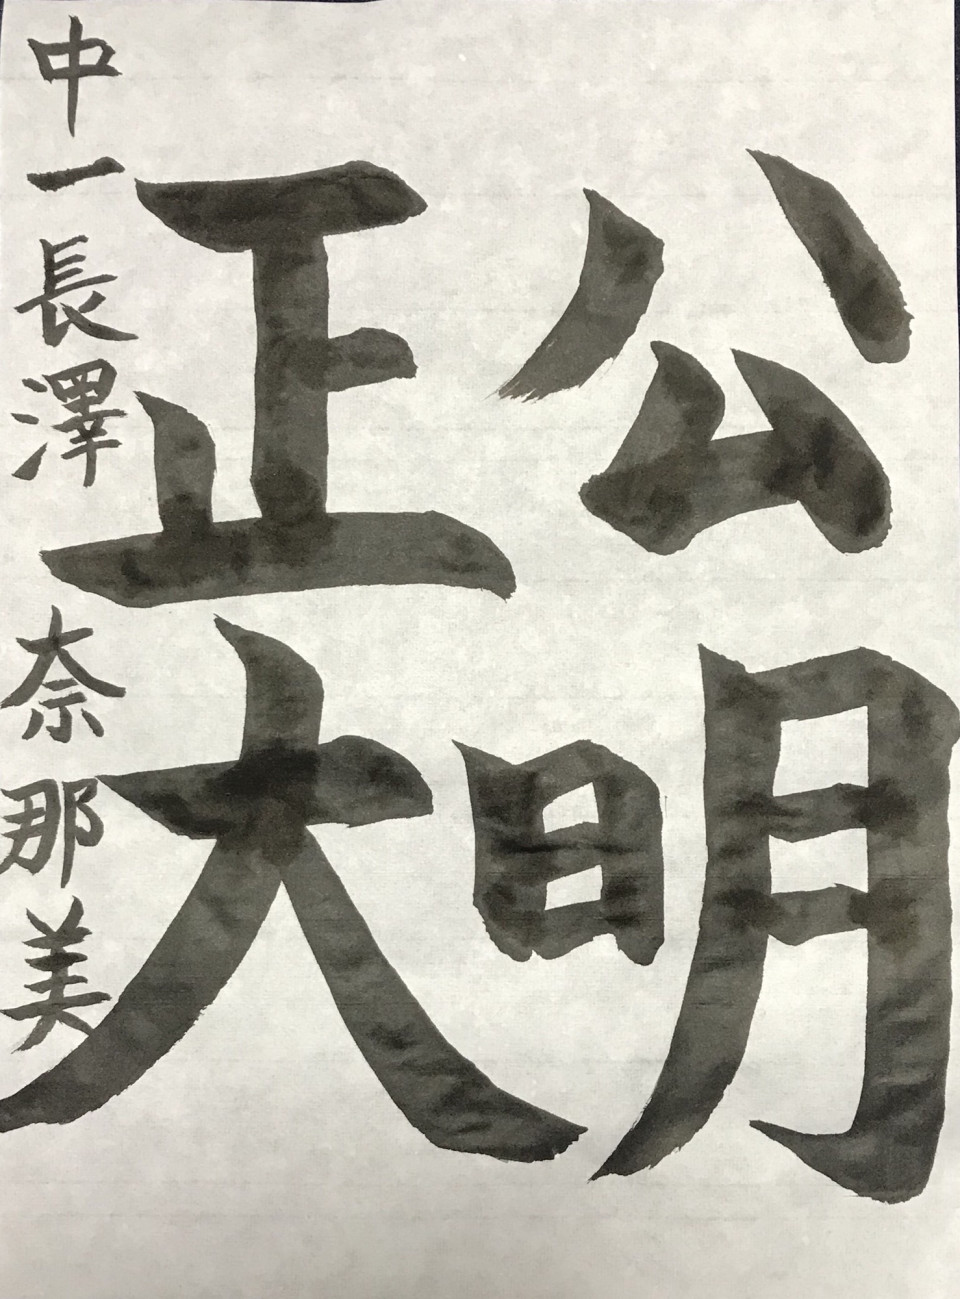 公明
正大
中一長澤奈那美